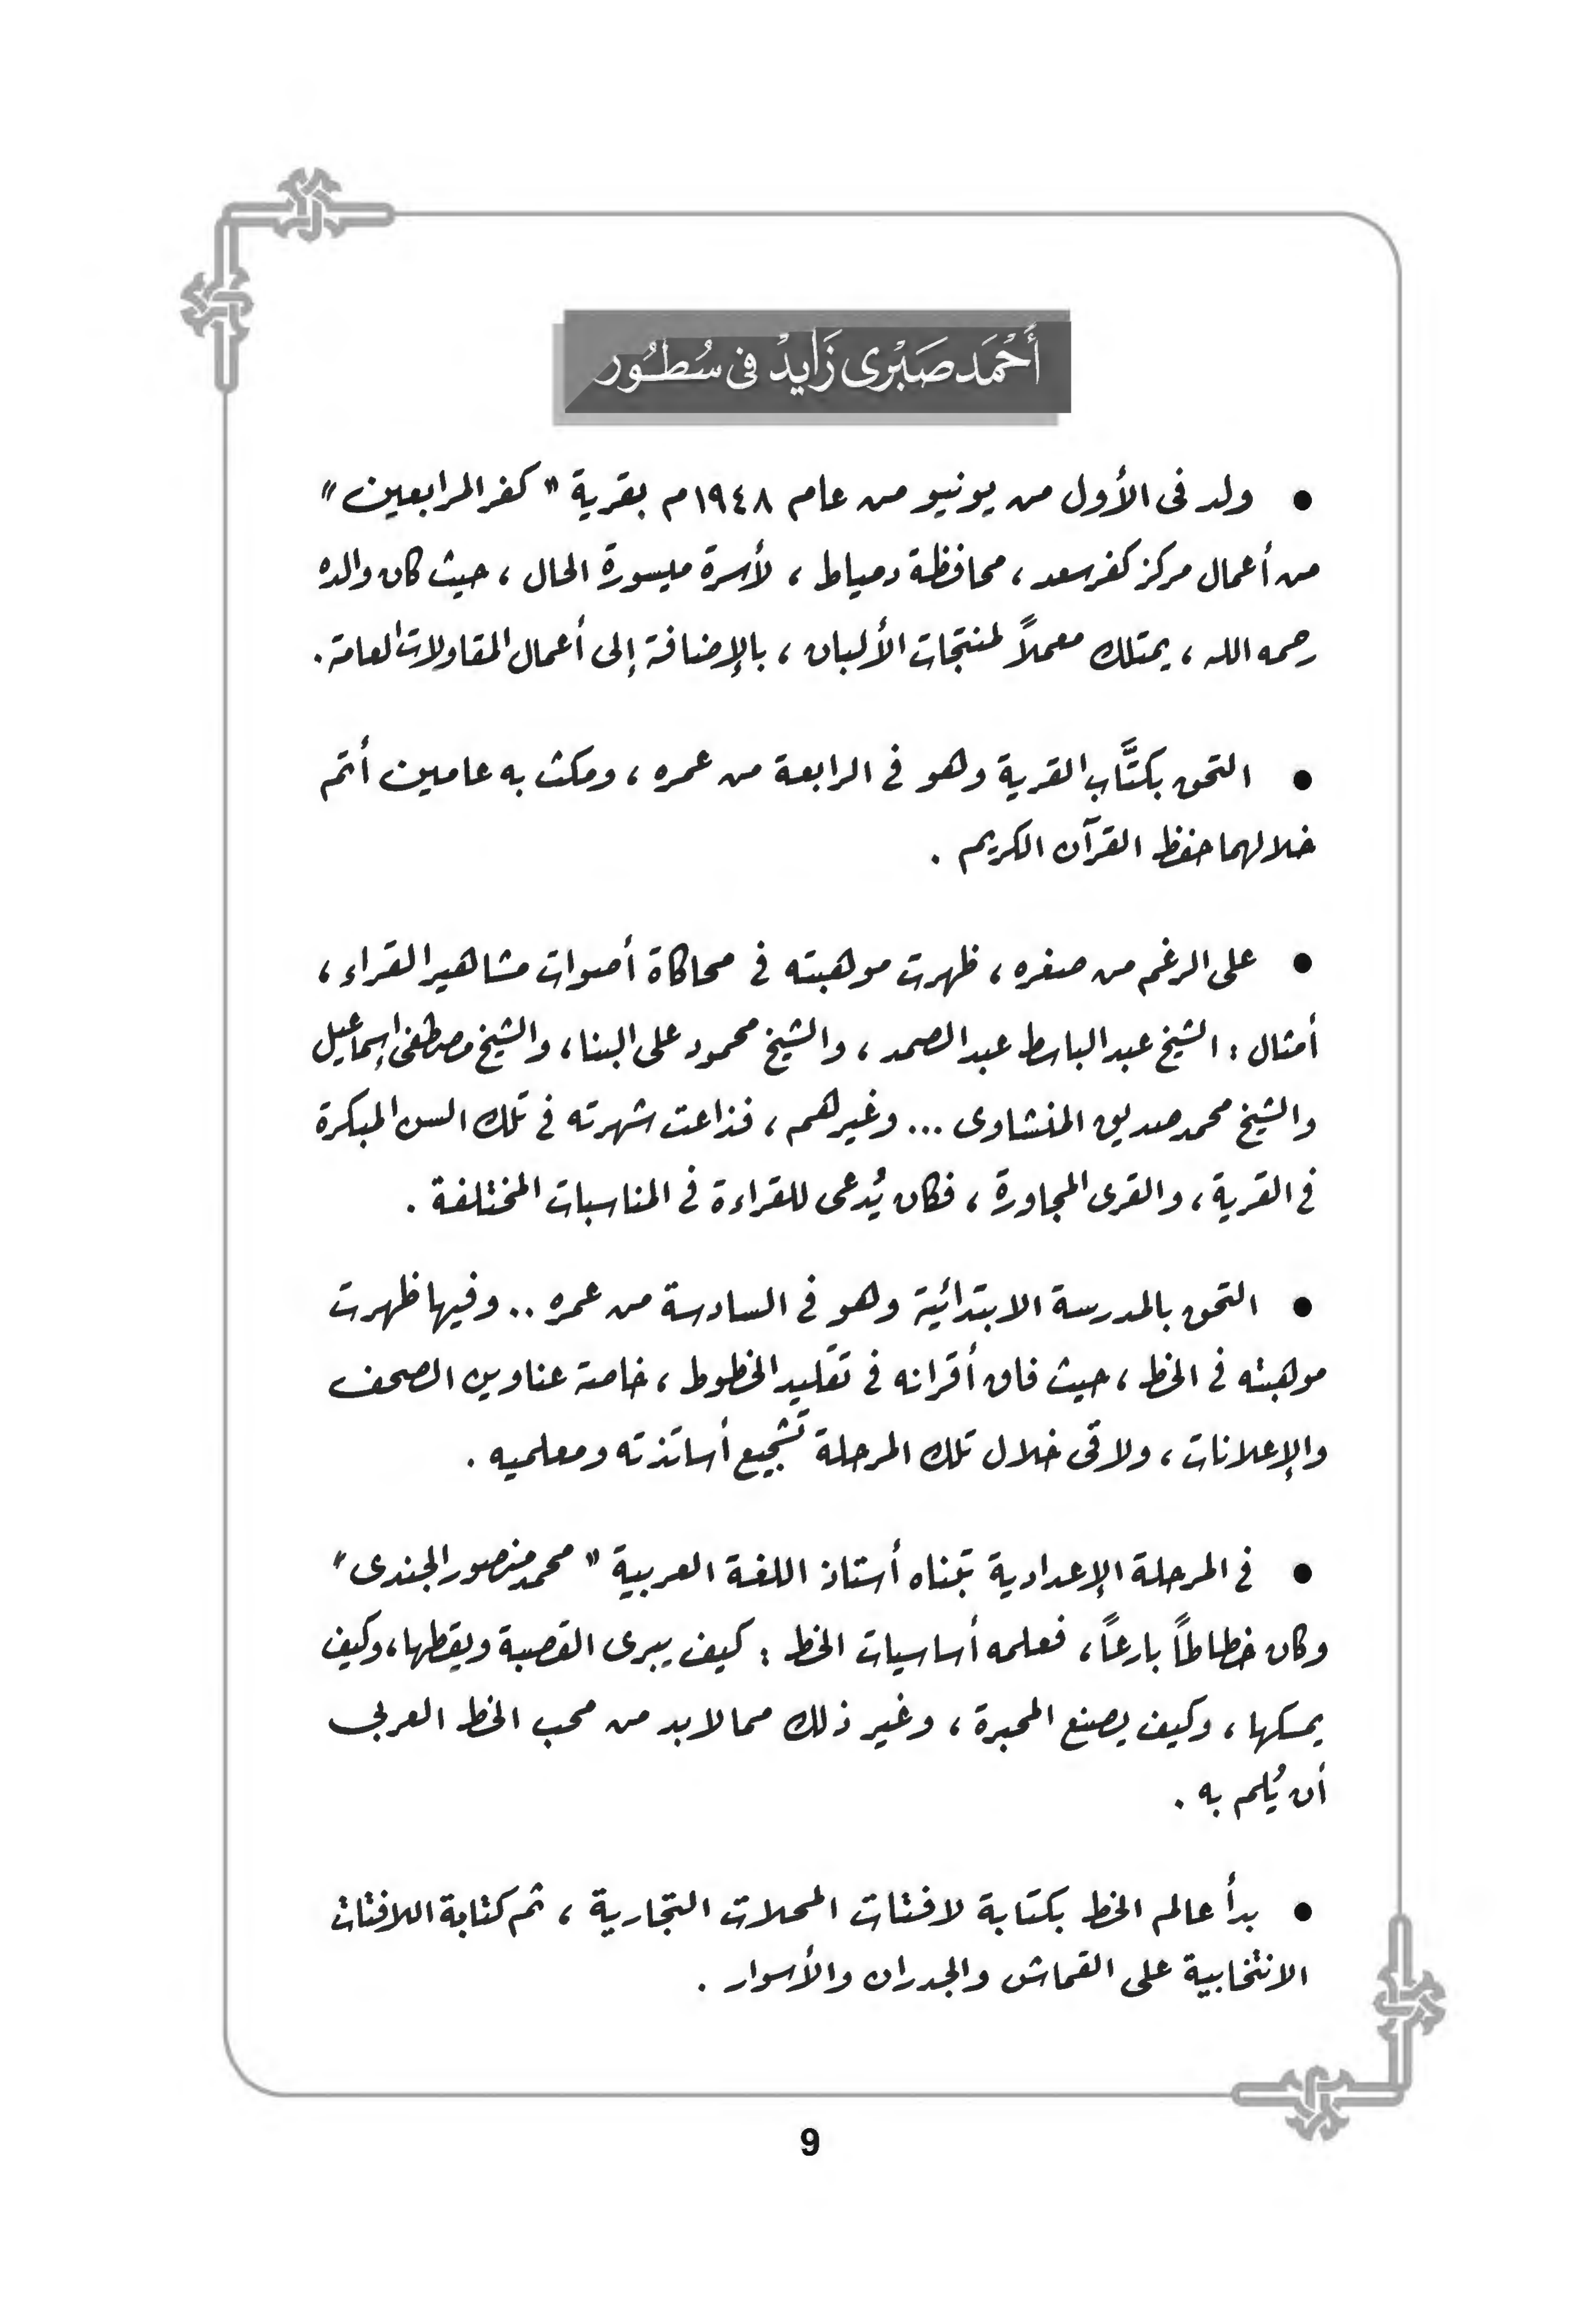 أَحْمَد صَبْرى زَايدْ فى سُطُور
● ولد فى الأول من يونيو من عام ١٩٤٨م بقرية "كفر المرابعين"
من أعمال مركز كفر سعد ، محافظة دمياط ، لأسرة ميسورة الحال ، حيث كان والده
رحمه الله ، يمتلك معملاً لمنتجات الألبان ، بالإضافة إلى أعمال المقاولات العامة .
● التحق بكتَّاب القرية وهو فى الرابعة من عمره ، ومكث به عامين أتم
خلالهما حفظ القرآن الكريم .
● على الرغم من صغره ، ظهرت موهبته فى محاكاة أصوات مشاهير القراء ،
أمثال : الشيخ عبد الباسط عبد الصمد ، والشيخ محمود على البنا ، والشيخ مصطفى إسماعيل
والشيخ محمد صديق المنشاوى ... وغيرهم ، فذاعت شهرته فى تلك السن المبكرة
فى القرية ، والقرى المجاورة ، فكان يُدعى للقراءة فى المناسبات المختلفة .
● التحق بالمدرسة الابتدائية وهو فى السادسة من عمره .. وفيها ظهرت
موهبته فى الخط ، حيث فاق أقرانه فى تقليد الخطوط ، خاصة عناوين الصحف
والإعلانات ، ولاقى خلال تلك المرحلة تشجيع أساتذته ومعلميه .
● فى المرحلة الإعدادية تبناه أستاذ اللغة العربية "محمد منصور الجندى"
وكان خطاطاً بارعاً ، فعلمه أساسيات الخط : كيف يبرى القصبة ويقطها ، وكيف
يمسكها ، وكيف يصنع المحبرة ، وغير ذلك مما لابد من محب الخط العربى
أن يُلم به .
● بدأ عالم الخط بكتابة لافتات المحلات التجارية ، ثم كتابة اللافتات
الانتخابية على القماش والجدران والأسوار .
9